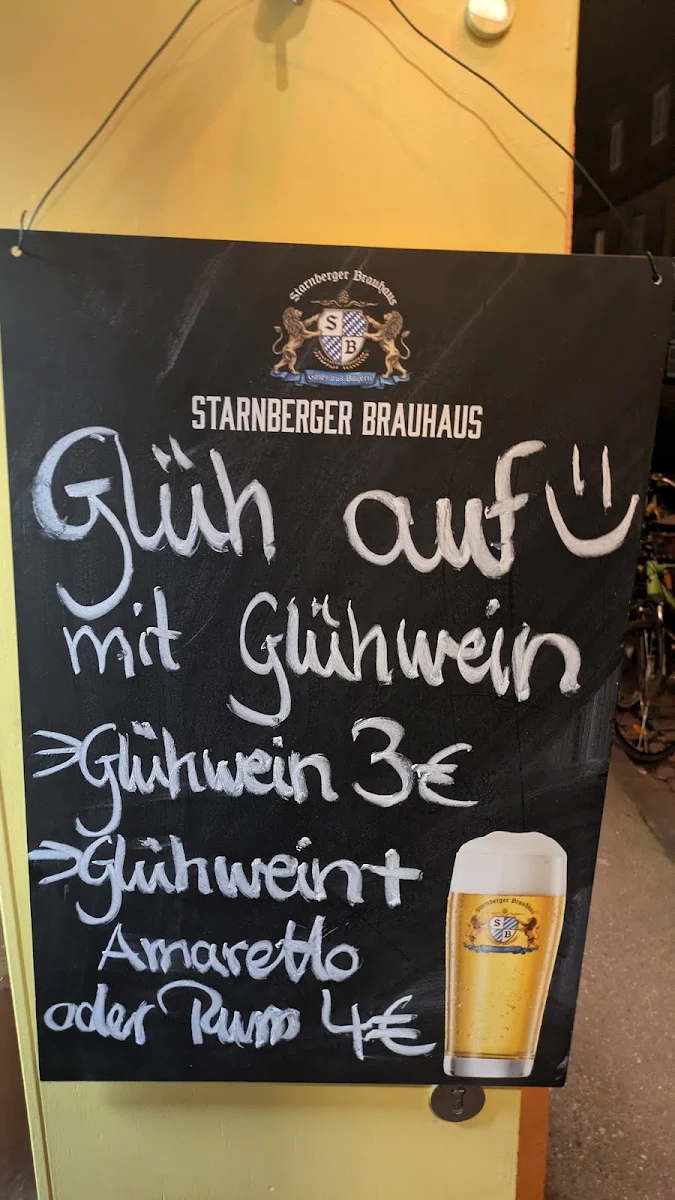 Starnberger Brauhaus
S
B
Gutes aus Bayern
STARNBERGER BRAUHAUS
Glüh auf
mit Glühwein
Glühwein 3€
Glühwein +
Amaretto
oder Rum 4€
Starnberger Brauhaus
S
B